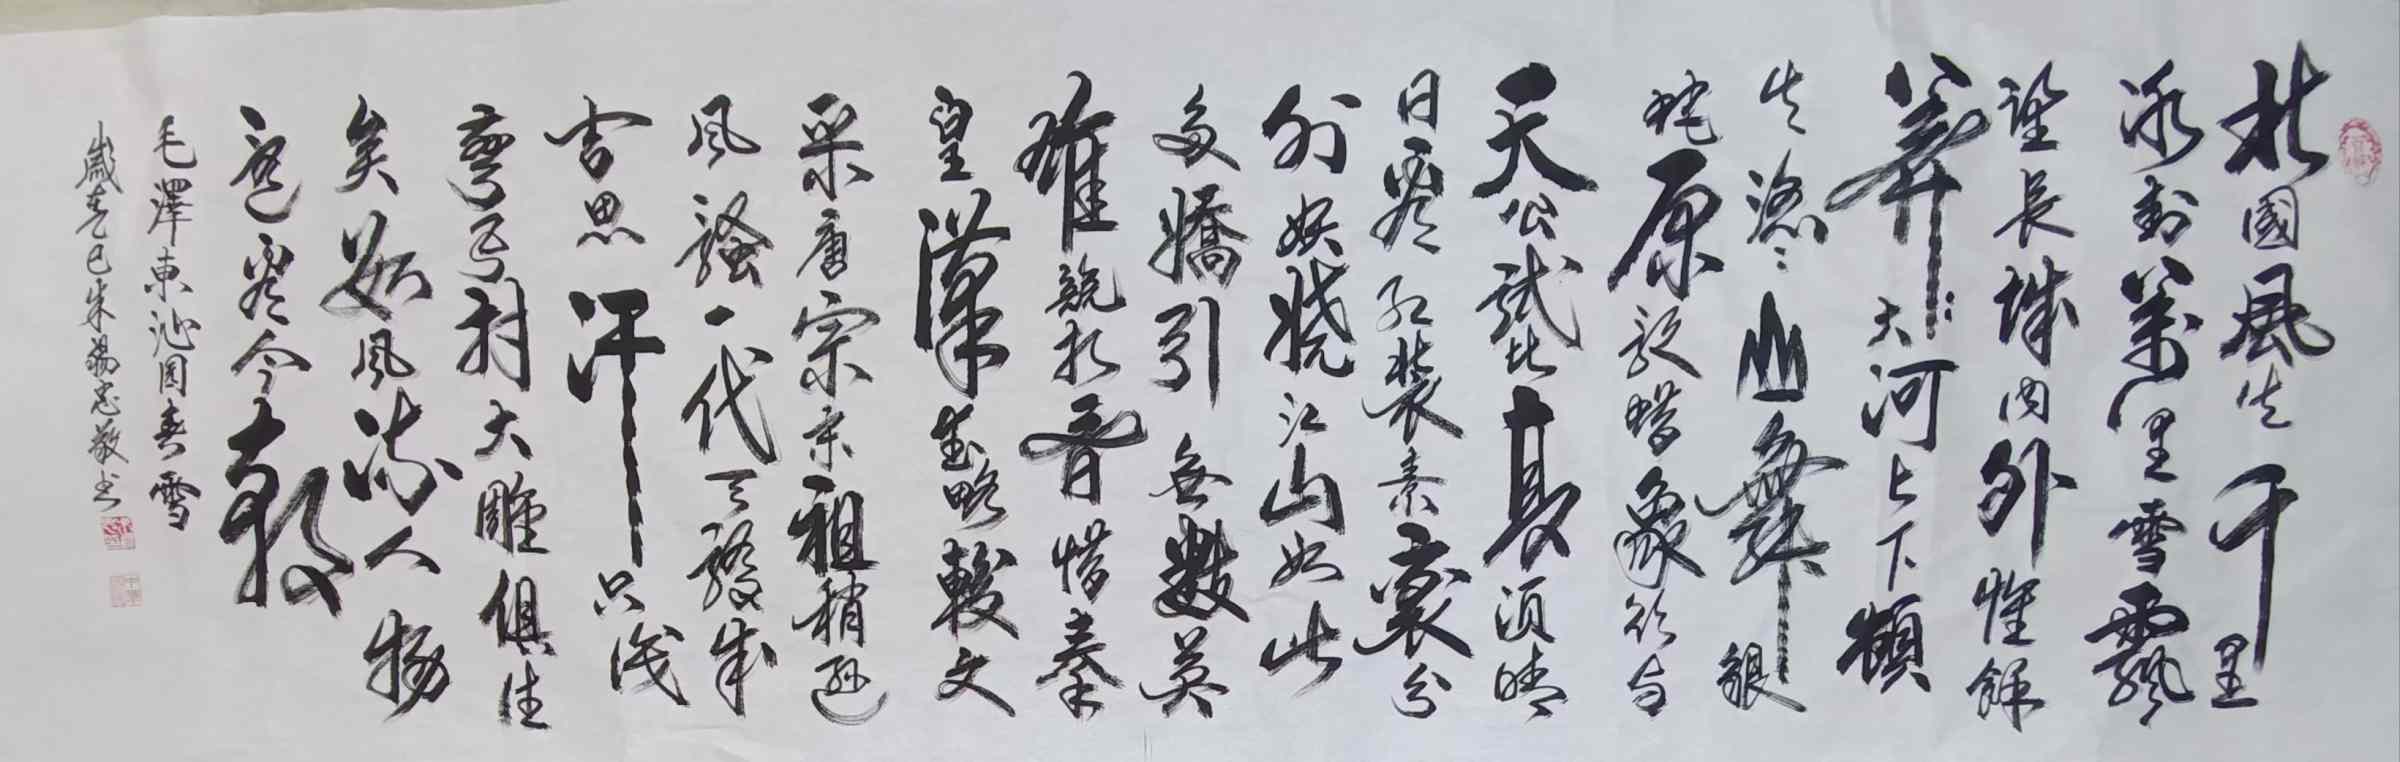 北國風光千里
冰封萬里雪飄
望長城内外惟餘
莽莽大河上下頓
失滔滔山舞銀
蛇原馳蠟象欲与
天公試比高須晴
日看紅裝素裹分
外妖嬈江山如此
多嬌引無數英
雄競折腰惜秦
皇漢武略輸文
采唐宗宋祖稍遜
風騷一代天驕成
吉思汗只識
彎弓射大雕俱往
矣數風流人物
還看今朝
毛澤東沁園春雪
歲在乙巳朱忠敬书